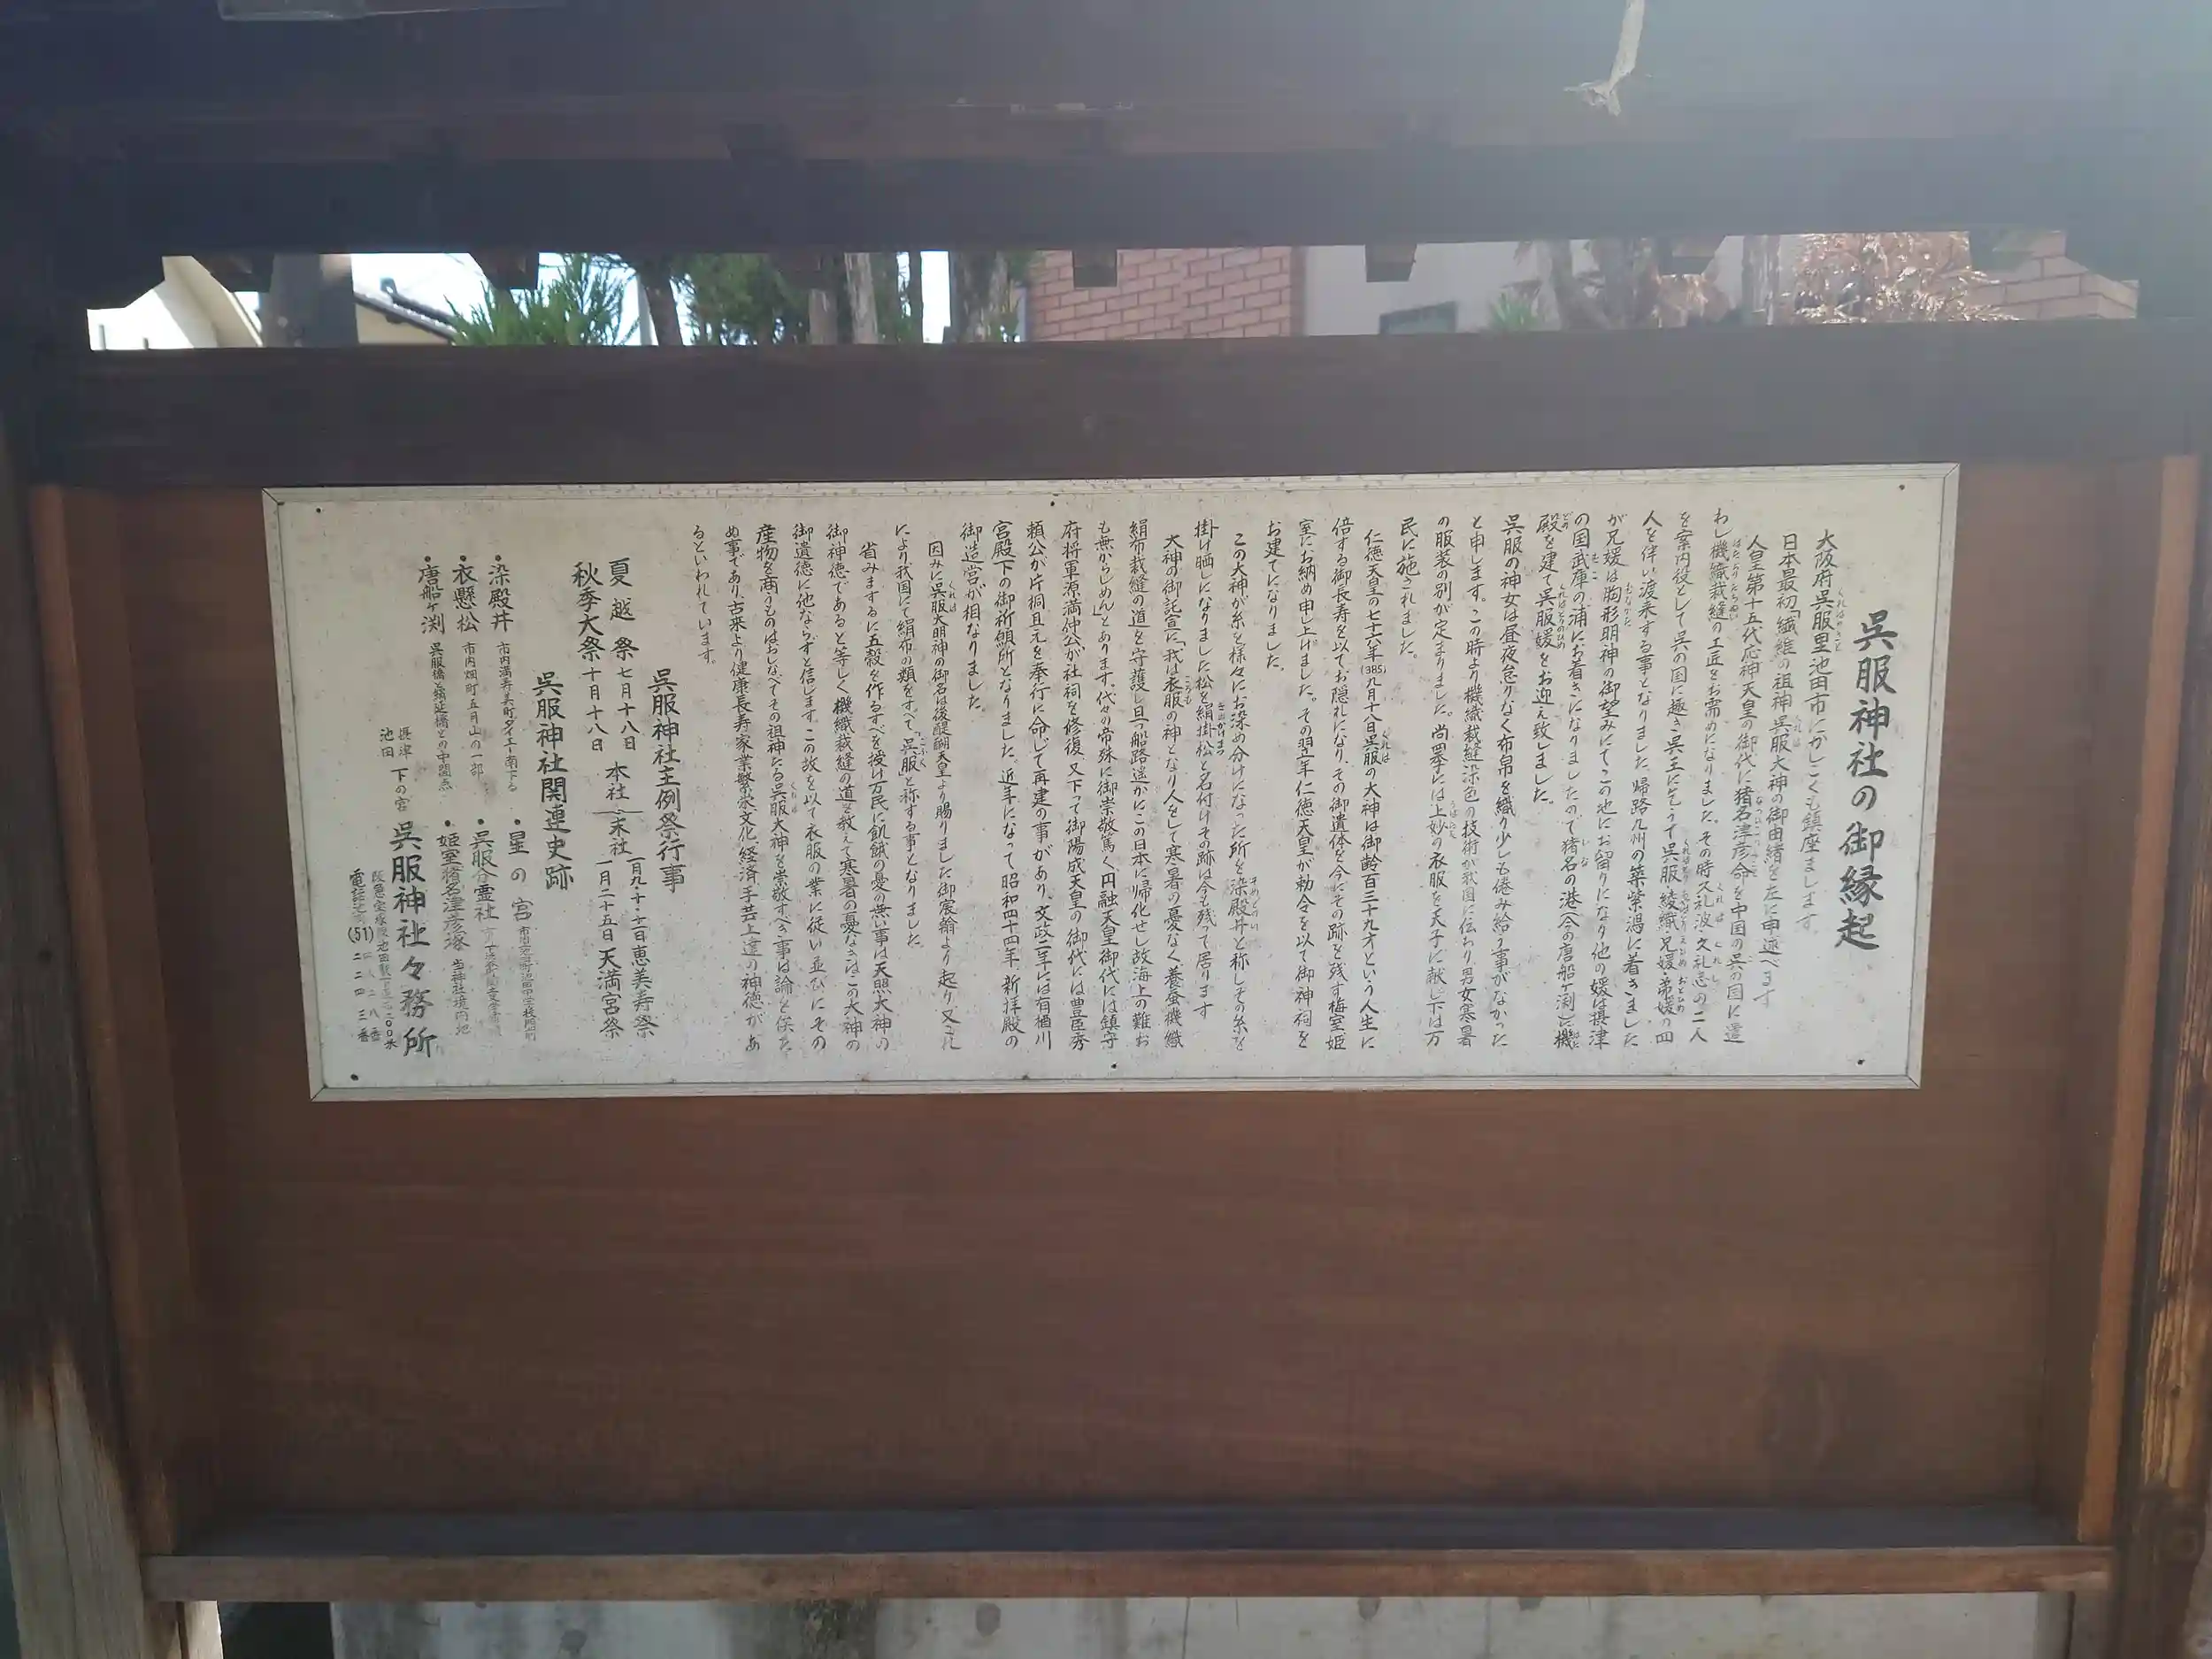 呉服神社の御縁起
大阪府呉服里池田市にかしこくも鎮座まします
日本最初「繊維の祖神」呉服大神の御由緒を左に申述べます
人皇第十五代応神天皇の御代に猪名津彦命を中国の呉の国に遣
わし機織裁縫の工匠をお需めになりました。その時久礼波・文礼志の二人
を案内役として呉の国に趣き呉王に乞うて呉服・綾織・兄媛・弟媛の四
人を伴い渡来する事となりました。帰路九州の築紫潟に着きました
が兄媛は胸形明神の御望みにてこの地にお留りになり他の媛は摂津
の国武庫の浦にお着きになりましたので猪名の港(今の唐船ヶ渕)に機
殿を建て呉服媛をお迎え致しました。
呉服の神女は昼夜怠りなく布帛を織り少しも倦み給う事がなかった
と申します。この時より機織裁縫染色の技術が我国に伝わり男女寒暑
の服装の別が定まりました。尚畢には上妙の衣服を天子に献じ下は万
民に施されました。
仁徳天皇の七十六年(385)九月十八日呉服の大神は御齢百三十九才という人生に
倍する御長寿を以てお隠れになり、その御遺体を今にその跡を残す梅室姫
室にお納め申し上げました。その翌年仁徳天皇が勅令を以て御神祠を
お建てになりました。
この大神が糸を様々にお染め分けになった所を染殿井と称しその糸を
掛け晒しになりました松を絹掛松と名付けその跡は今も残って居ります
大神の御託宣に「我は衣服の神となり人をして寒暑の憂なく養蚕機織
絹布裁縫の道を守護し且つ船路遥かにこの日本に帰化せし故海上の難お
も無からしめん」とあります。代々の帝殊に御崇敬篤く円融天皇御代には鎮守
府将軍源満仲公が社祠を修復、又下って御陽成天皇の御代には豊臣秀
頼公が片桐且元を奉行に命じて再建の事があり、文政二年には有栖川
宮殿下の御祈願所となりました。近年になって昭和四十四年新拝殿の
御造営が相なりました。
因みに呉服大明神の御名は後醍醐天皇より賜りました御宸翰より起り又これ
により我国にて絹布の類をすべて「呉服」と称する事となりました。
省みまするに五穀を作るすべを授け万民に飢餓の憂の無い事は天照大神の
御神徳であると等しく機織裁縫の道を教えて寒暑の憂なきはこの大神の
御遺徳に他ならずと信じます。この故を以て衣服の業に従い並びにその
産物を商うものはおしなべてその祖神たる呉服大神を崇敬すべき事は論を俟た
ぬ事であり、古来より健康長寿家業繁栄文化、経済、手芸上達の神徳があ
るといわれています。
呉服神社主例祭行事
夏越祭 七月十八日 本社 末社 一月九・十・十一日 恵美寿祭
秋季大祭 十月十八日 一月二十五日 天満宮祭
呉服神社関連史跡
・染殿井 市内満寿美町ダイエー南下る ・星の宮
・衣懸松 市内畑町五月山の一部 ・呉服分霊社
・唐船ヶ渕 呉服橋と絹延橋との中間点 ・姫室猪名津彦塚 当神社境内地
摂津
池田
下の宮 呉服神社々務所
電話 (51) 二二四三番